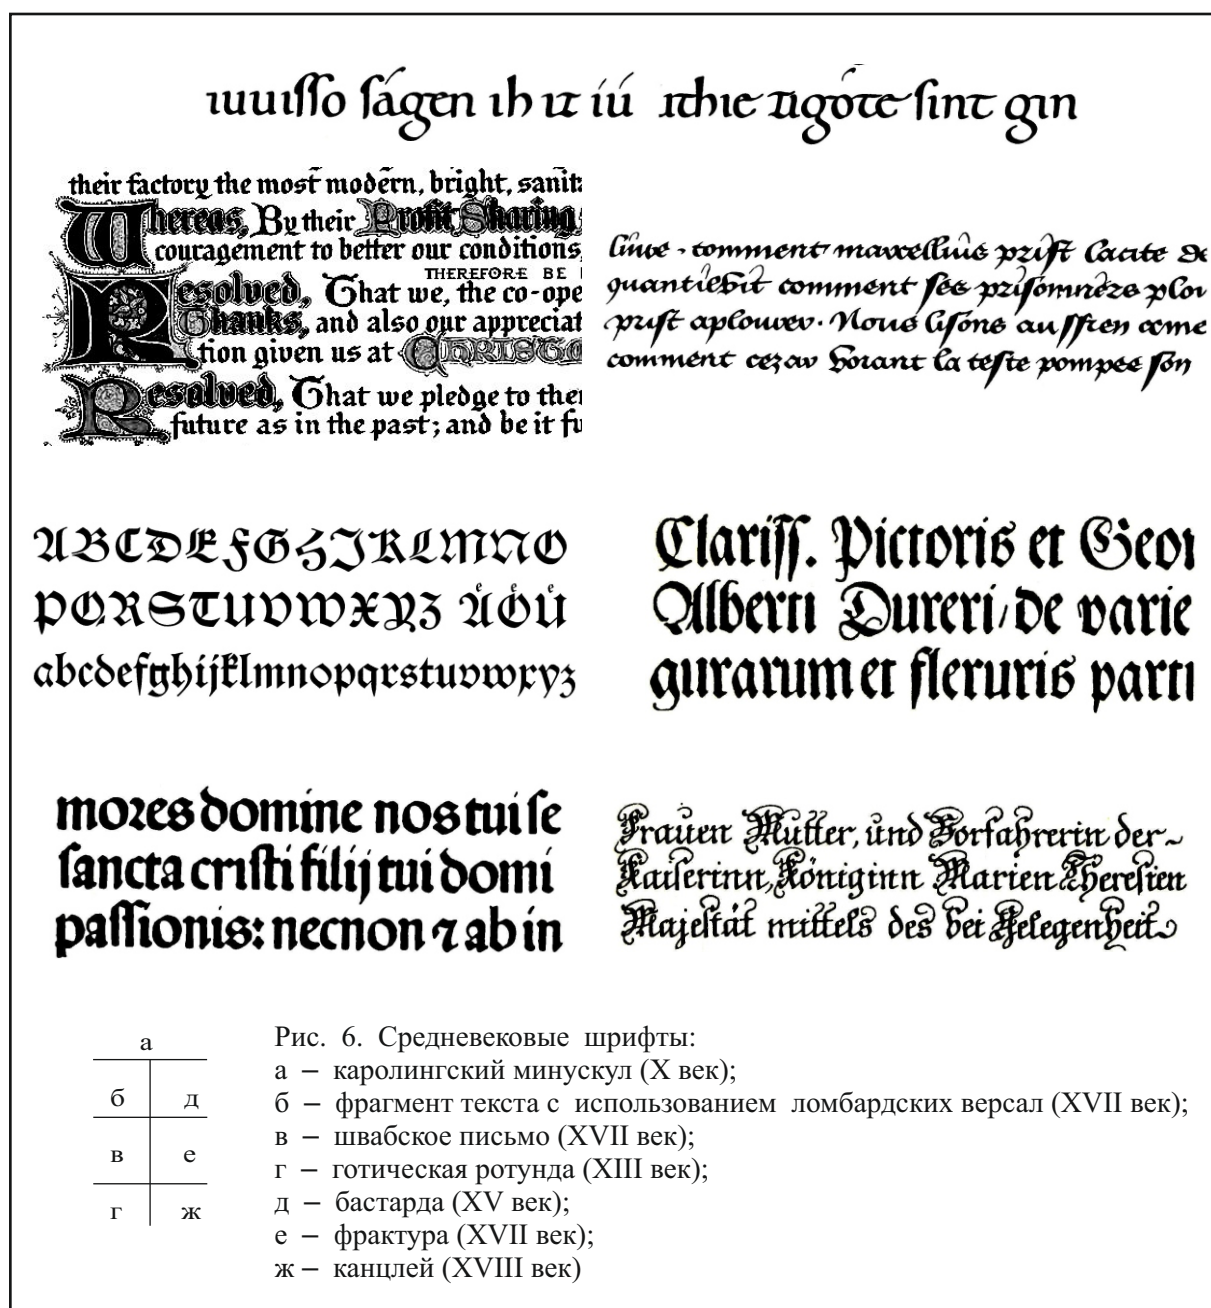 ıuuıſſo ſágen ıh ız íú ıthıe
gıgóte ſınt gın
their factory the most modern, bright, sanit
Whereas, By their Profit Sharing
couragement to better our conditions,
THEREFORE BE
Resolved, That we, the co-ope
Thanks, and also our appreciat
tion given us at CHRISTO
Resolved, That we pledge to the
future as in the past; and be it fu
comment prıſt la cite de
comment ſes
prıſt Nous liſons auſſi en
comment la teſte pompee ſon
ABCDEFGHIJKLMNO
PQRSTUVWXYZ ÄÖÜ
abcdefghijklmnopqrstuvwxyz
Clariſſ. Pictoris et Geo
Alberti Dureri/de varie
gurarum et flexuris parti
mores domine nos tui ſe
ſancta criſti filij tui domi
paſſionis: necnon ⁊ ab in
Frauen Mutter, und Vorfahrerin der~
Kaiſerinn, Königinn Marien Thereſien
Majeſtät mittels des bei Gelegenheit
а
б д
в е
г ж
Рис. 6. Средневековые шрифты:
а – каролингский минускул (X век);
б – фрагмент текста с использованием ломбардских версал (XVII век);
в – швабское письмо (XVII век);
г – готическая ротунда (XIII век);
д – бастарда (XV век);
е – фрактура (XVII век);
ж – канцлей (XVIII век)